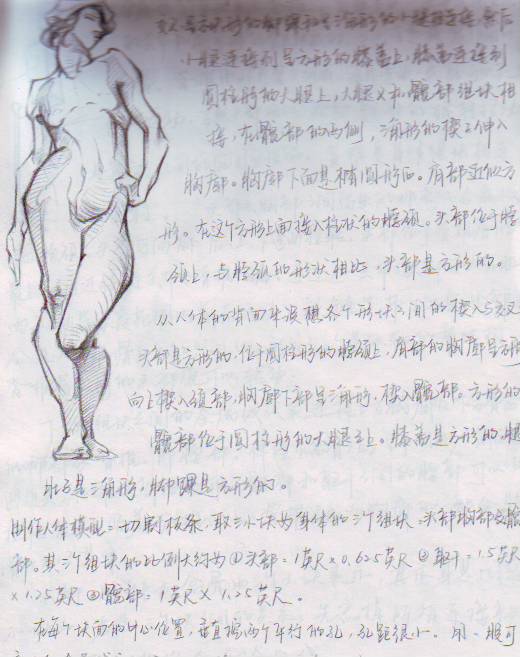 是方形的脚踝和呈三角形的小腿相连接，然后
小腿连接到呈方形的膝盖上，膝盖连接到
圆柱形的大腿上，大腿又和髋部组块相
接，在髋部的两侧，三角形的楔子伸入
胸廓。胸廓下面是椭圆形。肩部近似方
形。在这个方形上面接入柱状的脖颈。头部位于脖
颈上，与脖颈的形状相比，头部是方形的。
从人体的背面来设想各个形块之间的楔入与交叉
头部是方形的，位于圆柱形的脖颈上，肩部的胸廓呈方形
向上楔入颈部，胸廓下部呈三角形，楔入髋部。方形的
髋部位于圆柱形的大腿之上。膝盖是方形的，腿
肚子是三角形，脚踝是方形的。
制作人体模型：切割板条，取三小块为身体的三个组块：头部胸部及髋
部。其三个组块的比例大约为①头部=1英尺×0.625英尺②躯干=1.5英尺
×1.25英尺③髋部=1英尺×1.25英尺。
在每个块面的中心位置，垂直钻两个平行的孔，孔距很小。用一股可